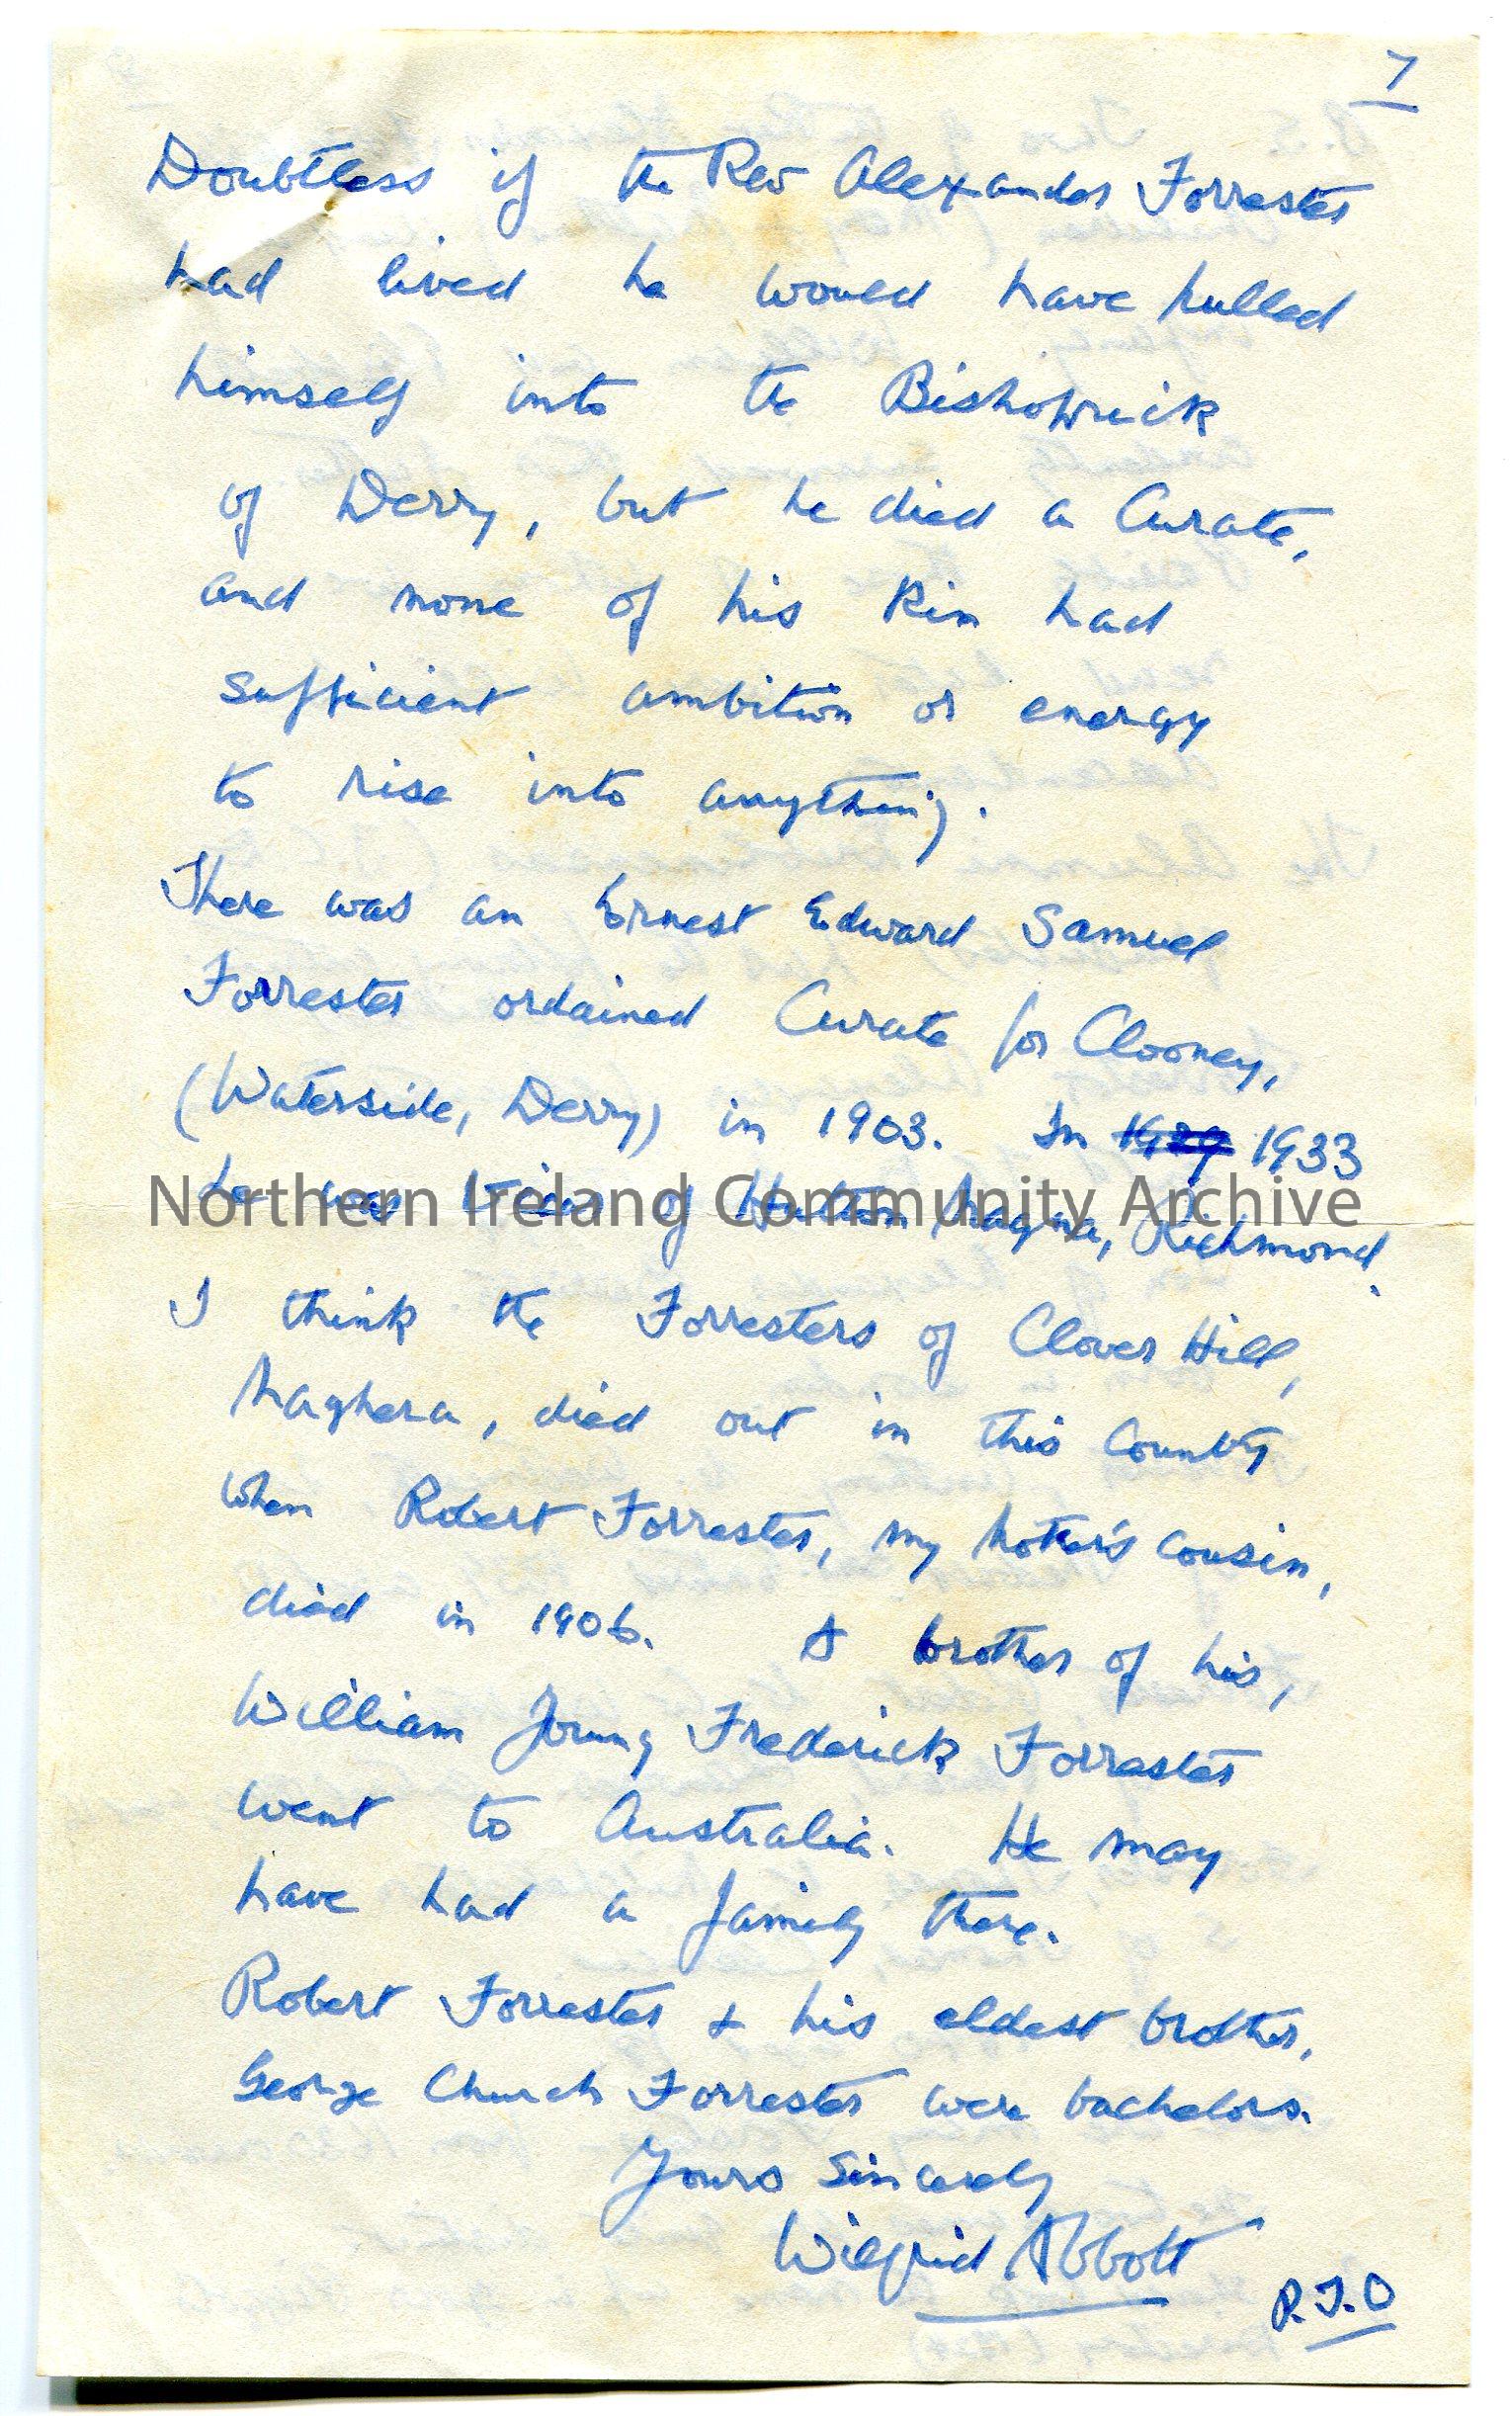 7
Doubtless if the Rev Alexander Forrester
had lived he would have pulled
himself into the Bishoprick
of Derry, but he died a Curate,
and none of his Kin had
sufficient ambition or energy
to rise into anything.
There was an Ernest Edward Samuel
Forrester ordained Curate for Clooney,
(Waterside, Derry) in 1903. In 1929 1933
he was Vicar of Hutton Magna, Richmond.
Northern Ireland Community Archive
I think the Forresters of Clover Hill,
Maghera, died out in this County
when Robert Forrester, my Mother's cousin,
died in 1906. A brother of his,
William Young Frederick Forrester
went to Australia. He may
have had a family there.
Robert Forrester & his eldest brother,
George Church Forrester were bachelors.
Yours Sincerely
Wilfrid Abbott
P.T.O